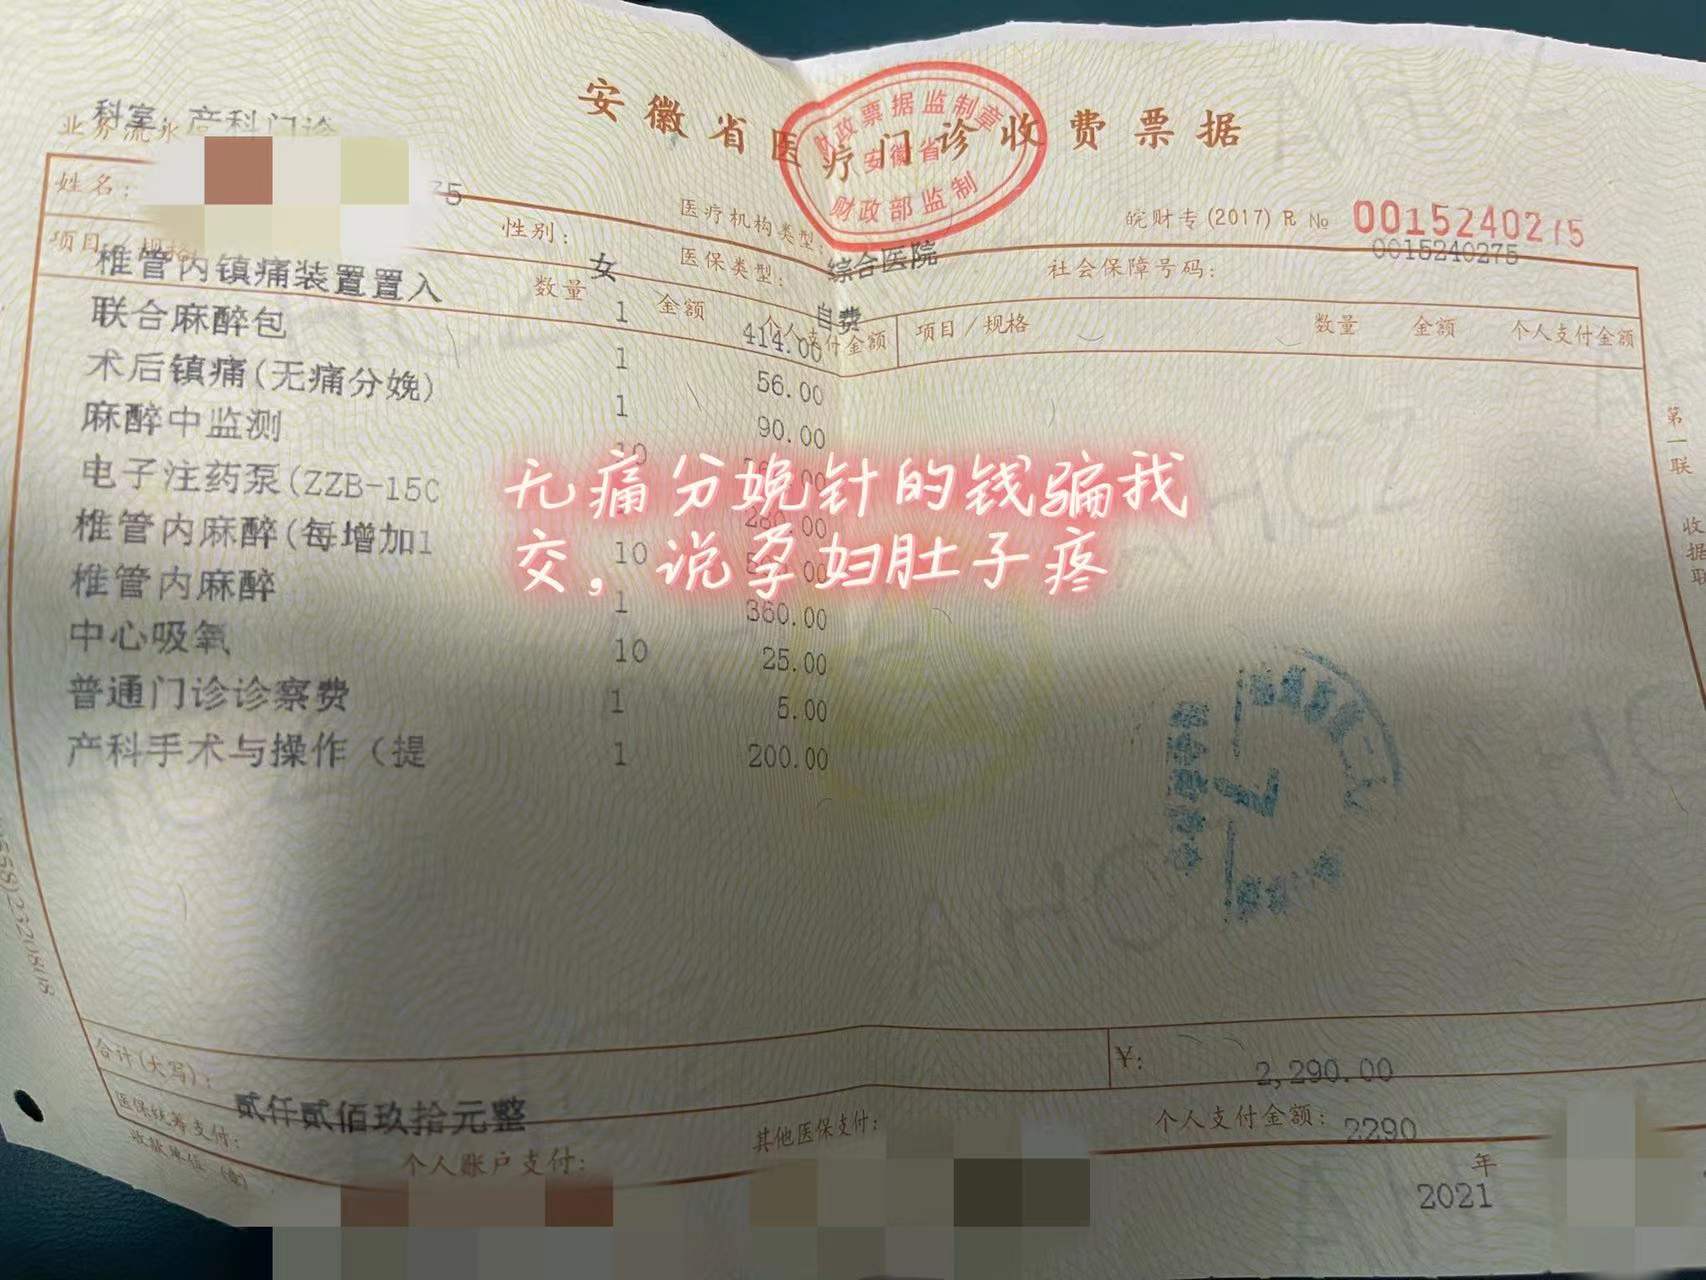 安徽省医疗门诊收费票据
财政票据监制章
安徽省
财政部监制
科室：产科门诊
业务流水
姓名：
75
性别：
女
医疗机构类型：
综合医院
皖财专(2017) R №
0015240275
0015240275
医保类型：
自费
社会保障号码：
项目／规格
数量
金额
个人支付金额
项目／规格
数量
金额
个人支付金额
椎管内镇痛装置置入 1 414.00
联合麻醉包 1 56.00
术后镇痛(无痛分娩) 1 90.00
麻醉中监测 10
电子注药泵(ZZB-150 280.00
椎管内麻醉(每增加1 10
椎管内麻醉 1 360.00
中心吸氧 10 25.00
普通门诊诊察费 1 5.00
产科手术与操作（提 1 200.00
无痛分娩针的钱骗我
交，说孕妇肚子疼
第一联
收据联
7
合计(大写)：
贰仟贰佰玖拾元整
¥：
2,290.00
医保统筹支付：
个人账户支付：
其他医保支付：
个人支付金额：
2290
收款单位
年
2021